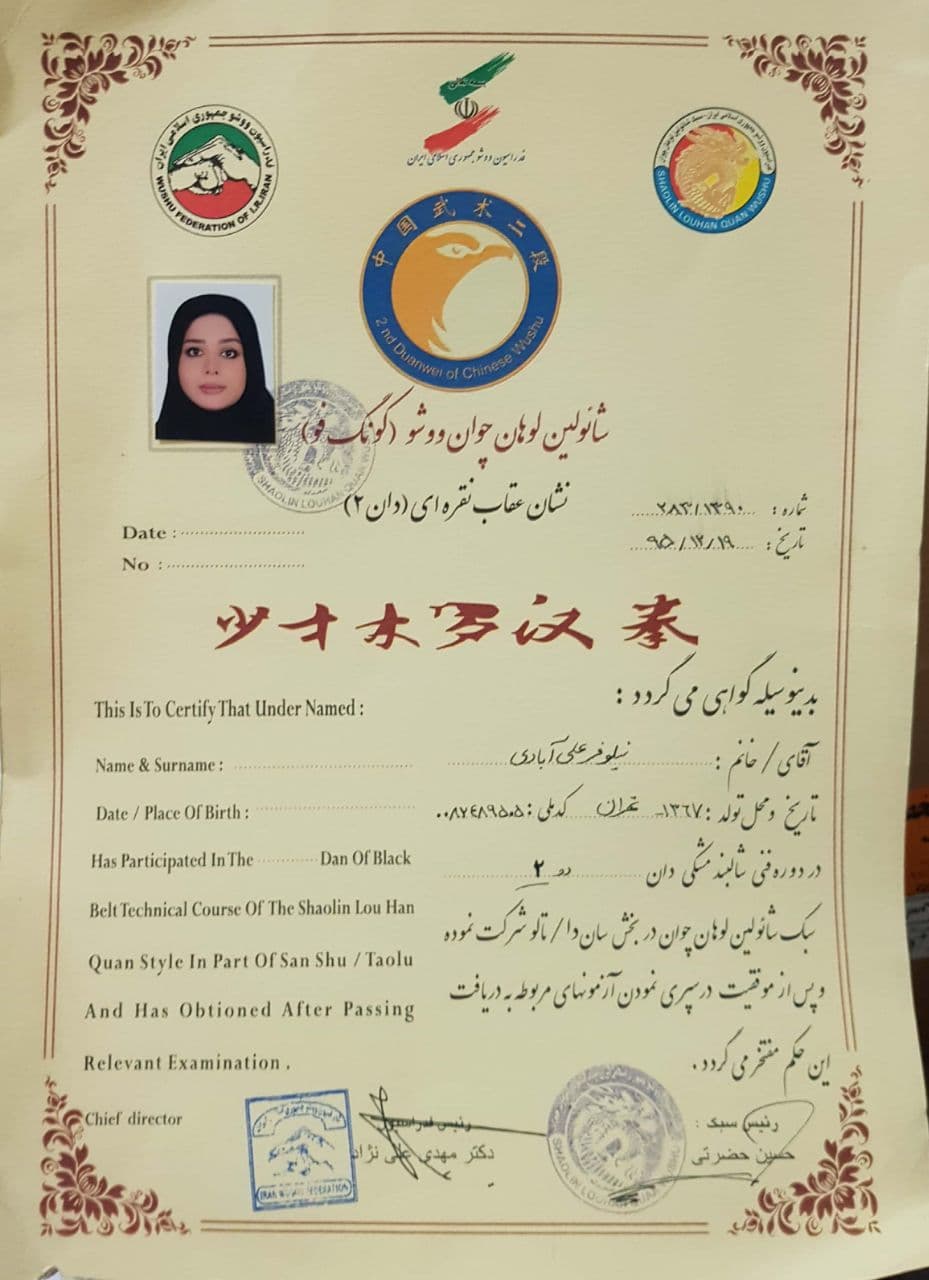 بسمه تعالی
فدراسیون ووشو جمهوری اسلامی ایران
فدراسیون ووشو جمهوری اسلامی ایران
WUSHU FEDERATION OF I.R.IRAN
SHAOLIN LOUHAN QUAN WUSHU
中国武术二段
2 nd Duanwei of Chinese Wushu
شائولین لوهان چوان ووشو (کونگ فو)
SHAOLIN LOUHAN QUAN WUSHU
نشان عقاب نقره ای (دان ۲)
شماره : ۲۸۳/۱۳۹۰
تاریخ : ۹۵/۱۲/۱۹
Date :
No :
少林罗汉拳
بدینوسیله گواهی می گردد :
This Is To Certify That Under Named :
آقای / خانم : نیلوفر علی آبادی
Name & Surname :
تاریخ ومحل تولد : ۱۳۶۷- تهران کد ملی : ۰۰۸۲۴۸۹۵۰۵
Date / Place Of Birth :
در دوره فنی شالبند مشکی دان دو ۲
Has Participated In The Dan Of Black
سبک شائولین لوهان چوان در بخش سان دا / تالو شرکت نموده
Belt Technical Course Of The Shaolin Lou Han
و پس از موفقیت در سپری نمودن آزمونهای مربوطه به دریافت
Quan Style In Part Of San Shu / Taolu
این حکم مفتخر می گردد .
And Has Obtioned After Passing
Relevant Examination .
Chief director
رئیس فدراسیون
دکتر مهدی علی نژاد
رئیس سبک :
حسین حضرتی
IRAN WUSHU FEDERATION